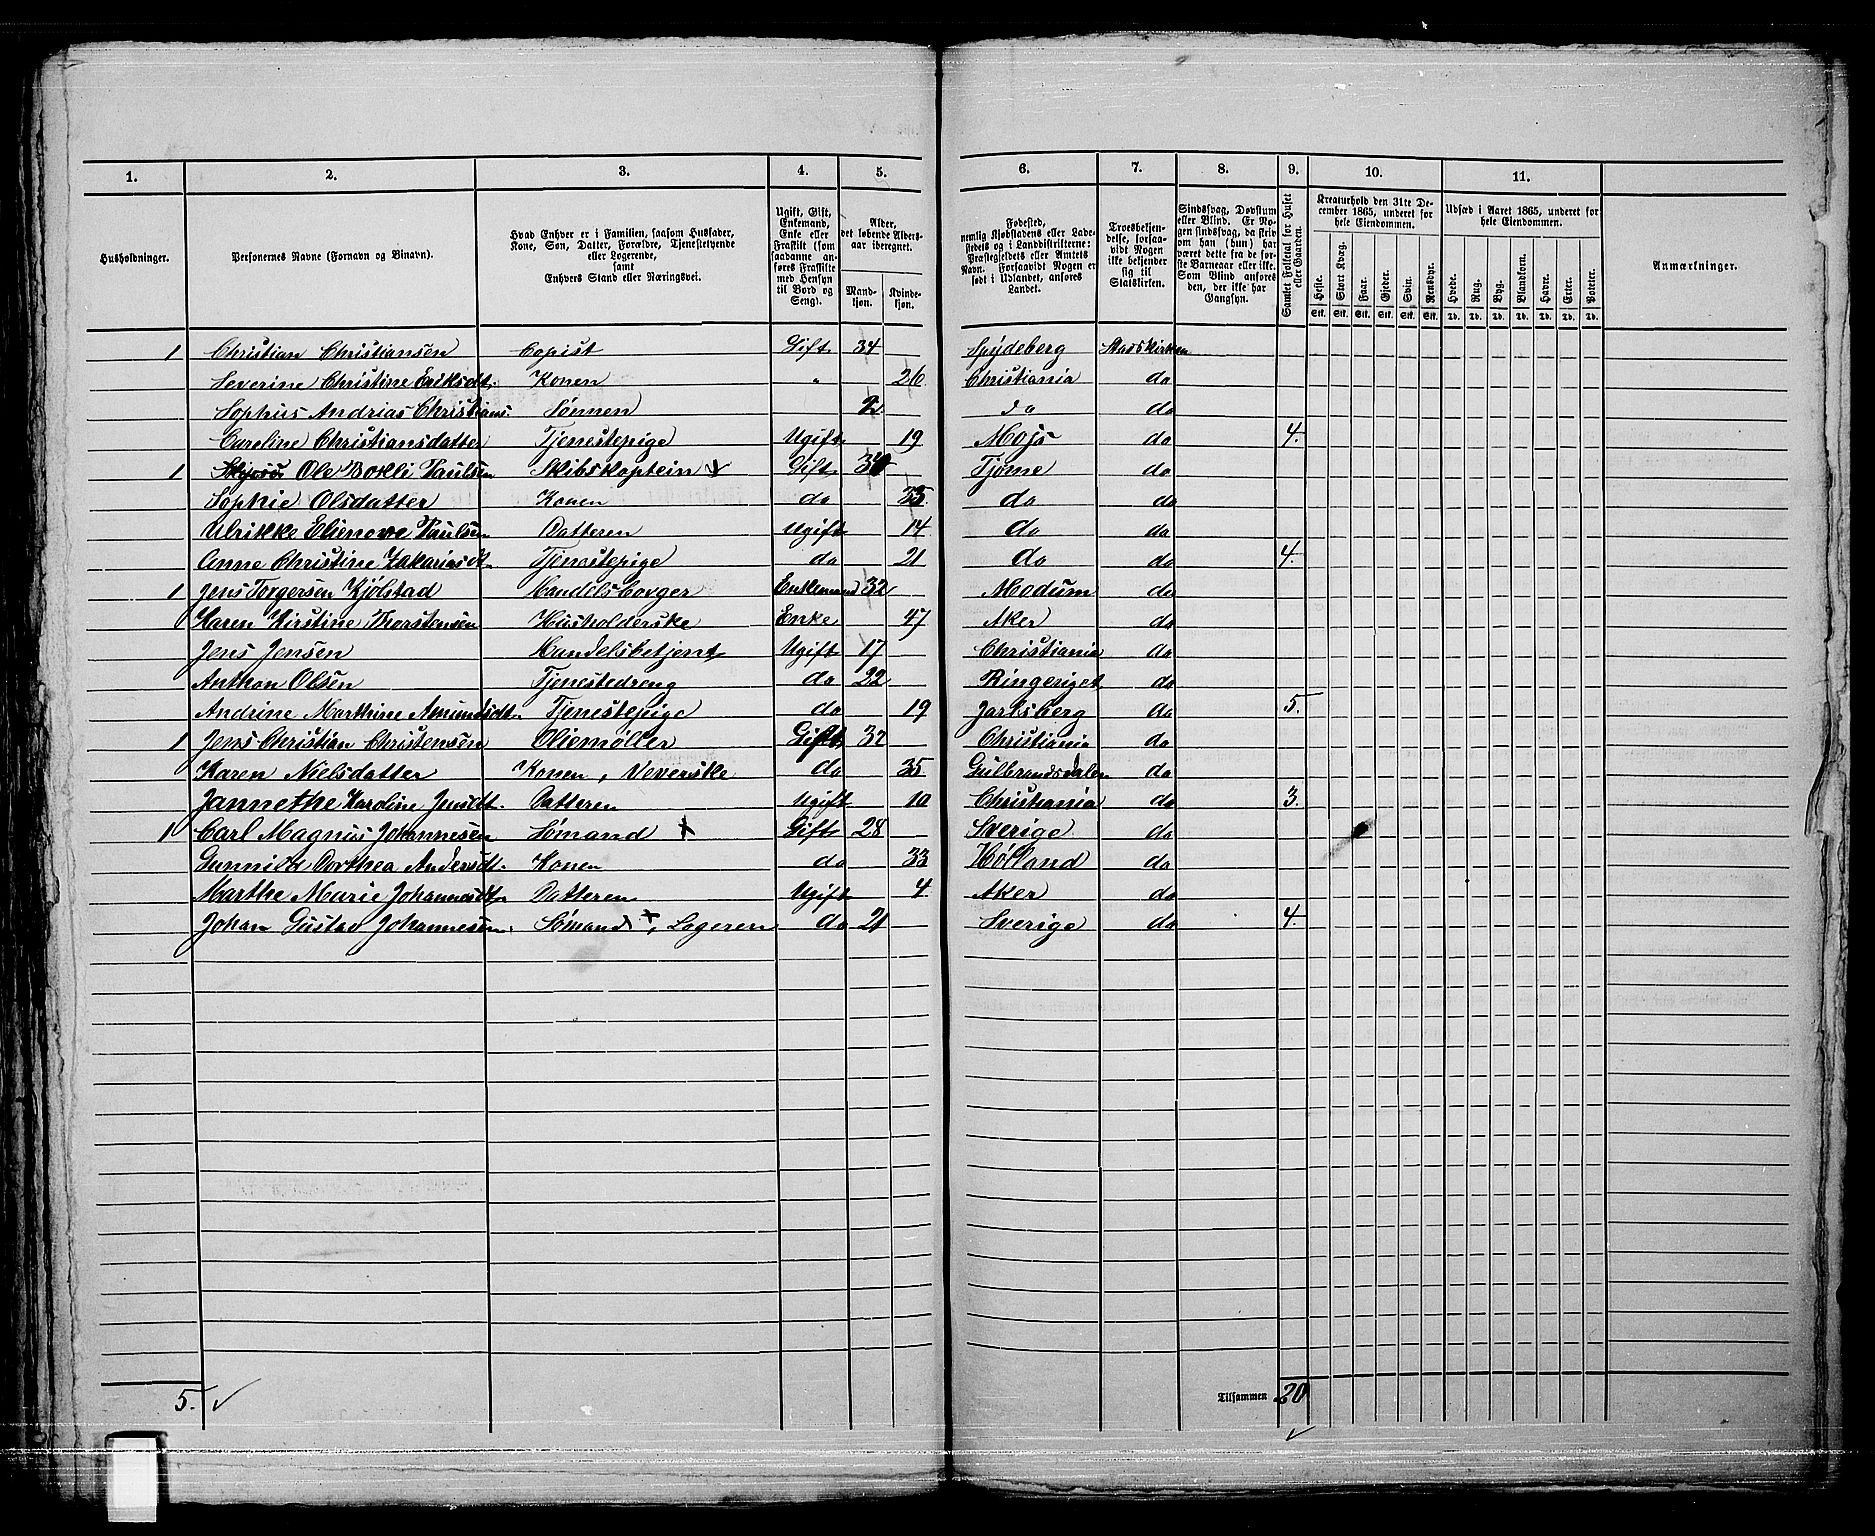 1. 2. 3. 4. 5. 6. 7. 8. 9. 10. 11.
Husholdninger.
Personernes Navne (Fornavn og Binavn).
Hvad Enhver er i Familien, saasom Husfader, Kone, Søn, Datter, Forældre, Tjenestetyende eller Logerende, samt Enhvers Stand eller Næringsvei.
Ugift, Gift, Enkemand, Enke eller Fraskilt (som saadanne anføres Fraskilte med Hensyn til Bord og Seng).
Alder, det løbende Aldersaar iberegnet.
Mandkjøn. Kvindekjøn.
Fødested, nemlig Kjøbstadens eller Ladestedets og i Landdistrikterne: Præstegjeldets eller Amtets Navn. Forsaavidt Nogen er født i Udlandet, anføres Landet.
Troesbekjendelse, forsaavidt Nogen ikke bekjender sig til Statskirken.
Sindssvag, Døvstum eller Blind. Er Nogen sindssvag, da skrives om han (hun) har været dette fra de første Barneaar eller ikke. Som Blind anføres den, der ikke har Gangsyn.
Samlet Folketal for Huset eller Gaarden.
Kreaturhold den 31te December 1865, underet for hele Eiendommen.
Heste. Stort Kvæg. Faar. Gjeder. Svin. Rensdyr.
Stk. Stk. Stk. Stk. Stk. Stk.
Udsæd i Aaret 1865, underet for hele Eiendommen.
Hvede. Rug. Byg. Blandkorn. Havre. Erter. Poteter.
Td. Td. Td. Td. Td. Td. Td.
Anmærkninger.
1 Christian Christiansen Copist Gift 34 Spydeberg Statskirken
Severine Christine Eriksdt. Konen " 26 Christiania do
Sophus Andrias Christians. Sønnen 2 do do
Careline Christiansdatter Tjenestepige Ugift 19 Mojs do 4.
1 Ole Bokli Paulsen Skibskaptein Gift Tjøme do
Sophie Olsdatter Konen do do do
Ulrikke Elienore Paulsen Datteren Ugift 14 do do
Anne Christine Zakariasdt. Tjenestepige do 21 do do 4.
1 Jens Torgersen Kjölstad Handelsborger Enkemand 32 Modum do
Karen Kirstine Thorstensen Husholderske Enke 47 Aker do
Jens Jensen Handelsbetjent Ugift 17 Christiania do
Anthon Olsen Tjenestedreng do 22 Ringeriget do
Andrine Marthine Amundsdt. Tjenestepige do 19 Jarlsberg do 5.
1 Jens Christian Christensen Oliemøller Gift 37 Christiania do
Karen Nielsdatter Konen, Veverske do 35 Gulbrandsdalen do
Jannethe Karoline Jensdt. Datteren Ugift 10 Christiania do 3.
1 Carl Magnus Johannesen Sømand x Gift 28 Sverige do
Dorthea Andersdt. Konen do 33 Høland do
Marthe Marie Johannesdt. Datteren Ugift 4. Aker do
Johan Gustav Johannesen. Sømand x, Logeren do 21 Sverige do 4.
5. ✓ Tilsammen 20 ✓